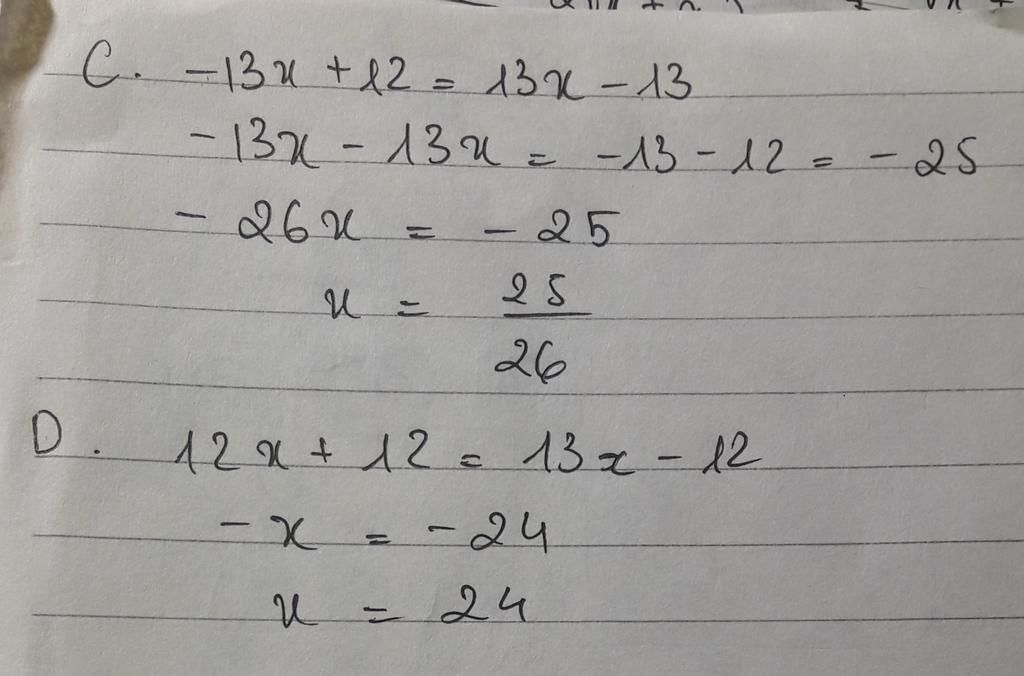 C. -13x + 12 = 13x - 13
-13x - 13x = -13 - 12 = -25
-26x = -25
x = 25/26
D. 12x + 12 = 13x - 12
-x = -24
x = 24